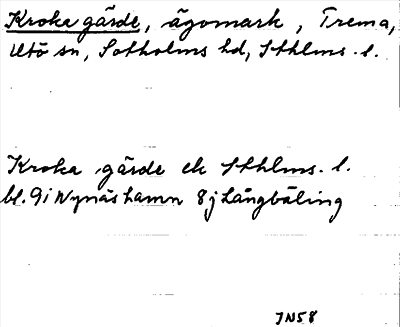 Kroka gärde, ägomark, Trema,
Utö sn, Sotholms hd, Sthlms. l.
Kroka gärde ek Sthlms. l.
bl. 9i Nynäshamn 8j Långbäling
JN58